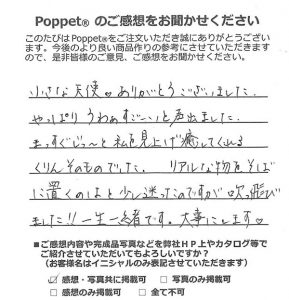 Poppet® のご感想をお聞かせください
このたびはPoppet®をご注文いただき誠にありがとうございます。今後のより良い商品作りの参考にさせていただきますので、是非皆様のご意見、ご感想をお聞かせください。
小さな天使♡ありがとうございました。
やっぱりうわぁすごーいと声出ました。
まっすぐじっ〜と私を見上げ癒してくれる
くりんそのものでした。 リアルな物をそば
に置くのはと少し迷ったのですが吹っ飛び
ました!!一生一緒です。大事にします♡
■ご感想内容や完成品写真などを弊社HP上やカタログ等で
ご紹介させていただいてもよろしいですか?
(お客様名はイニシャルのみ表記させていただきます)
☑感想・写真共に掲載可 □写真のみ掲載可
□感想のみ掲載可 □全て不可